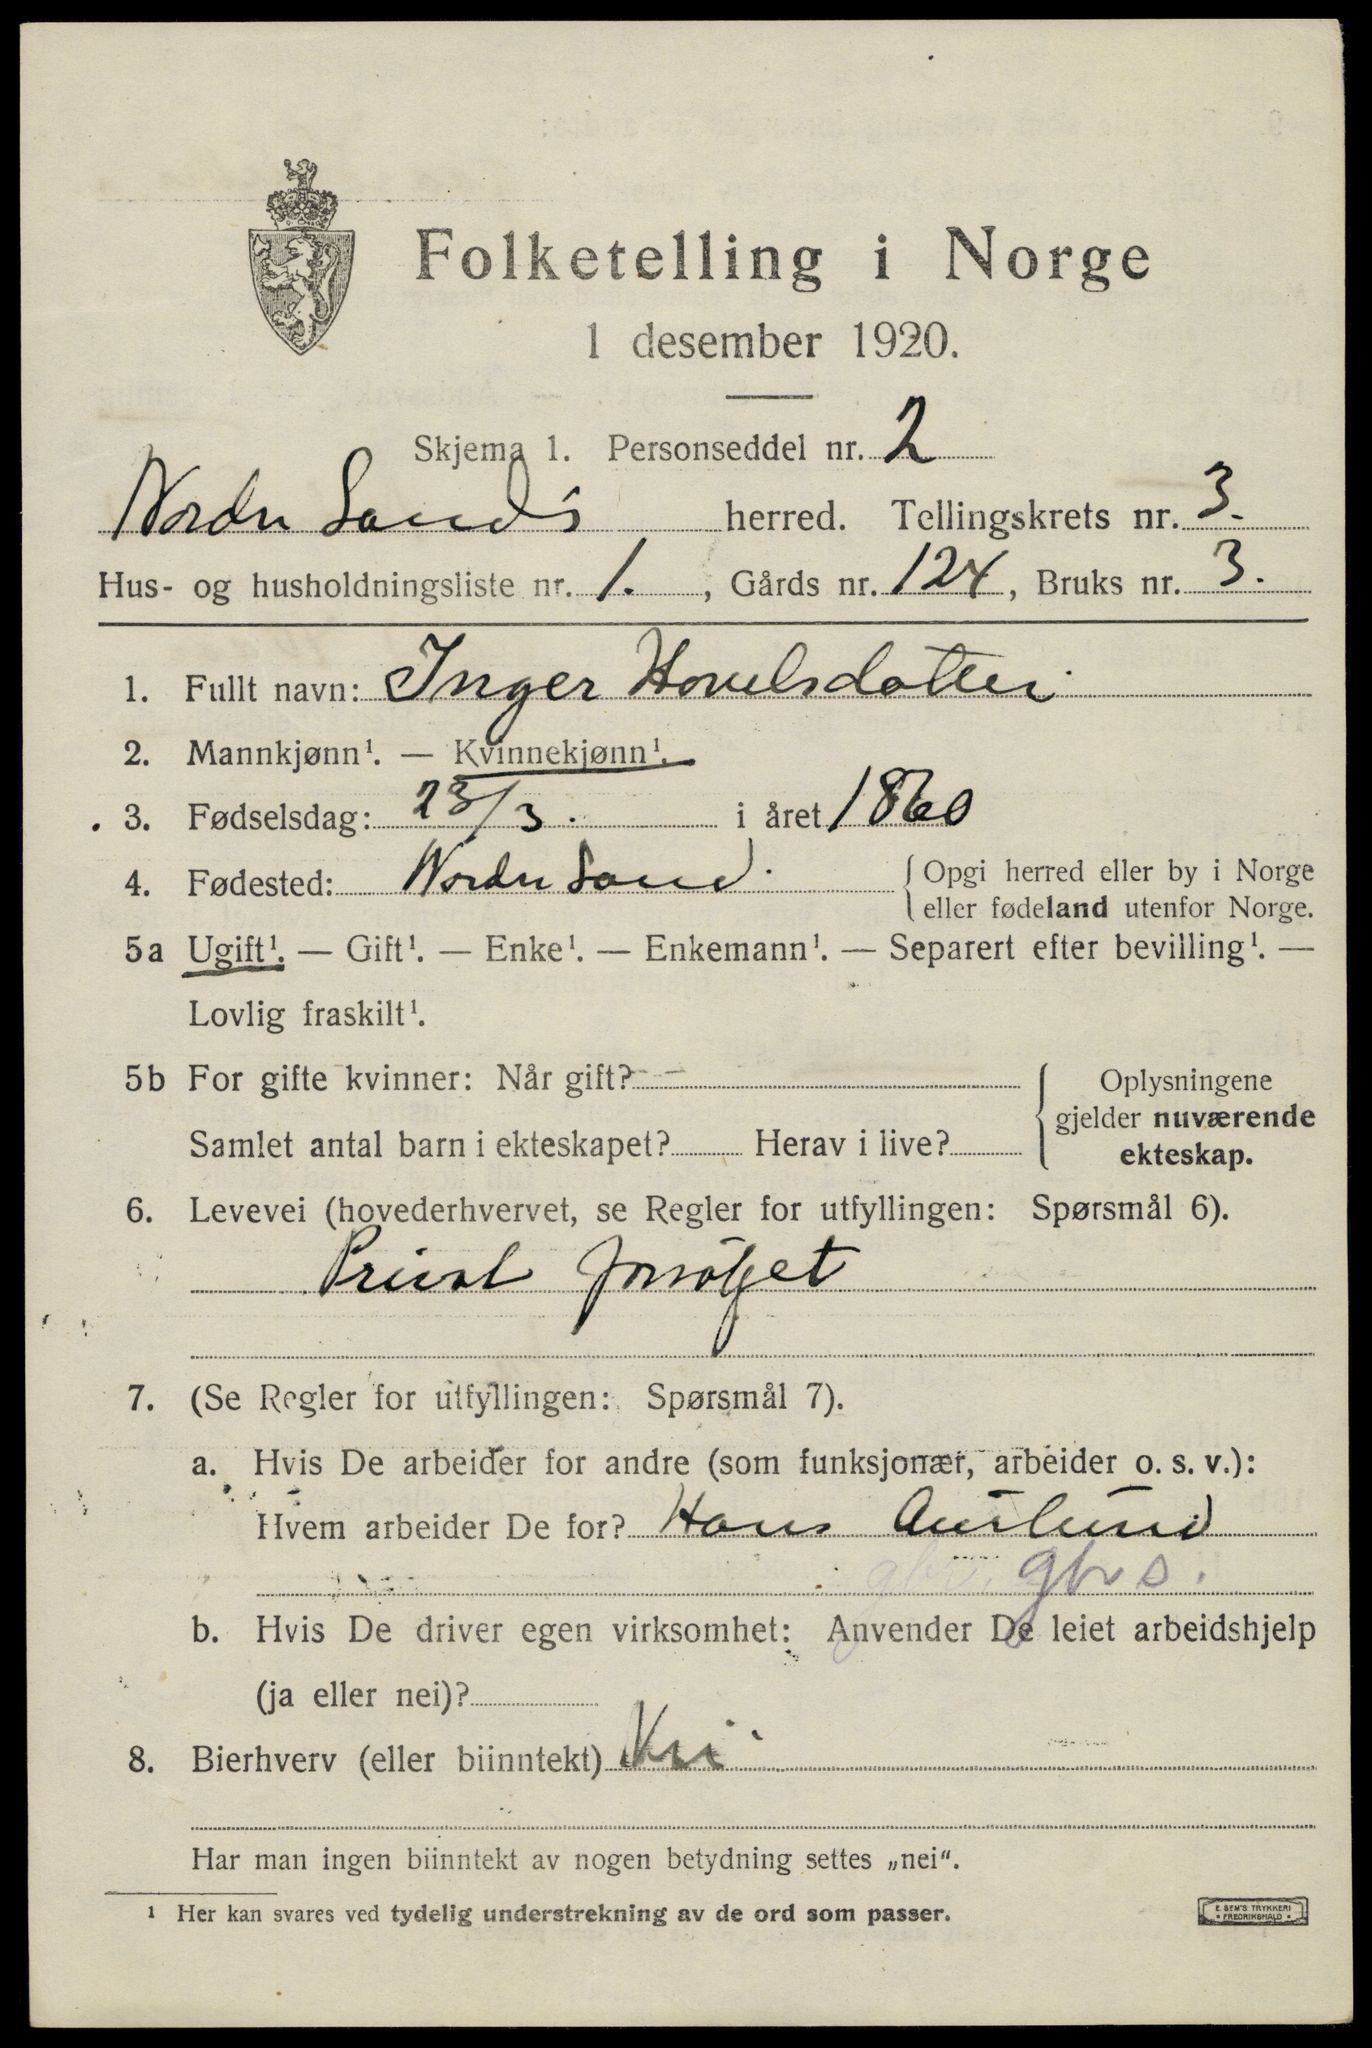 Folketelling i Norge
1 desember 1920.
Skjema 1. Personseddel nr. 2
Nordre Lands herred. Tellingskrets nr. 3.
Hus- og husholdningsliste nr. 1. , Gårds nr. 124, Bruks nr. 3.
1. Fullt navn: Inger Hovelsdatter
2. Mannkjønn¹. — Kvinnekjønn¹.
3. Fødselsdag: 23/3. i året 1860
4. Fødested: Nordre Land. Opgi herred eller by i Norge
eller fødeland utenfor Norge.
5a Ugift¹. — Gift¹. — Enke¹. — Enkemann¹. — Separert efter bevilling¹. —
Lovlig fraskilt¹.
5b For gifte kvinner: Når gift? — Oplysningene
gjelder nuværende
Samlet antal barn i ekteskapet? Herav i live?
ekteskap.
6. Levevei (hovederhvervet, se Regler for utfyllingen: Spørsmål 6).
Privat forsørget
7. (Se Regler for utfyllingen: Spørsmål 7).
a. Hvis De arbeider for andre (som funksjonær, arbeider o. s. v.):
Hvem arbeider De for? Hans Aurlund
gbr. gbrs.
b. Hvis De driver egen virksomhet: Anvender De leiet arbeidshjelp
(ja eller nei)?
8. Bierhverv (eller biinntekt) Nei
Har man ingen biinntekt av nogen betydning settes „nei“.
¹ Her kan svares ved tydelig understrekning av de ord som passer.
E. SEM'S TRYKKERI
FREDRIKSHALD